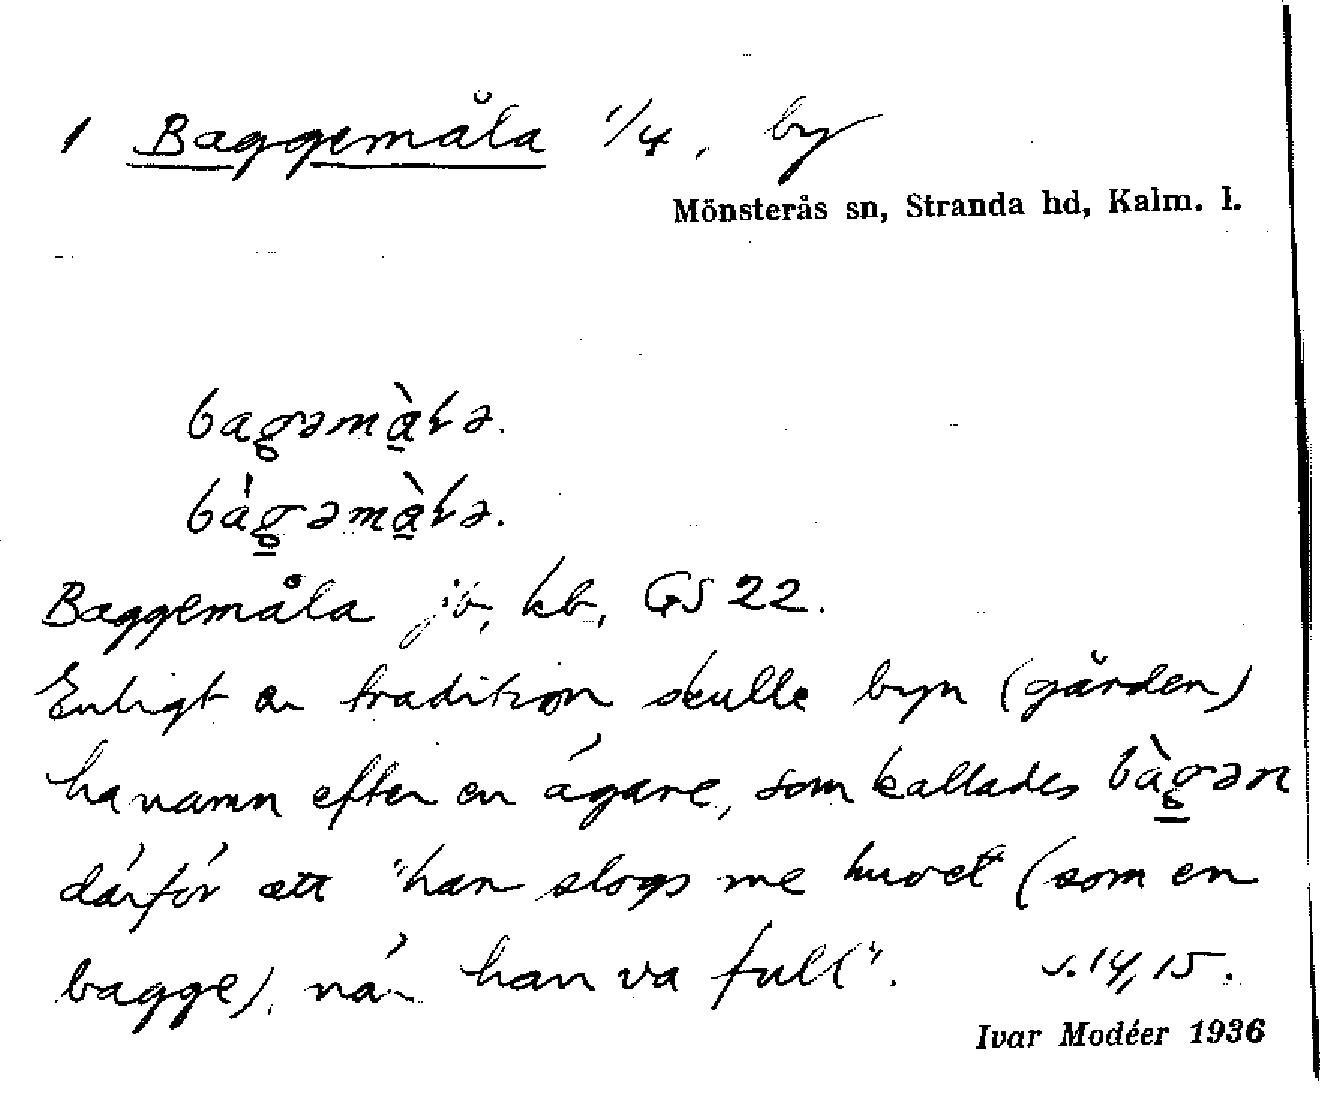 1 Baggemåla 1/4, by
Mönsterås sn, Stranda hd, Kalm. l.
bagəmàlə.
bágəmàlə.
Baggemåla jb, kb, GS 22.
Enligt en tradition skulle byn (gården)
ha namn efter en ägare, som kallades bàgən
därför att "han slogs me huvet (som en
bagge), när han va full". s. 14, 15.
Ivar Modéer 1936